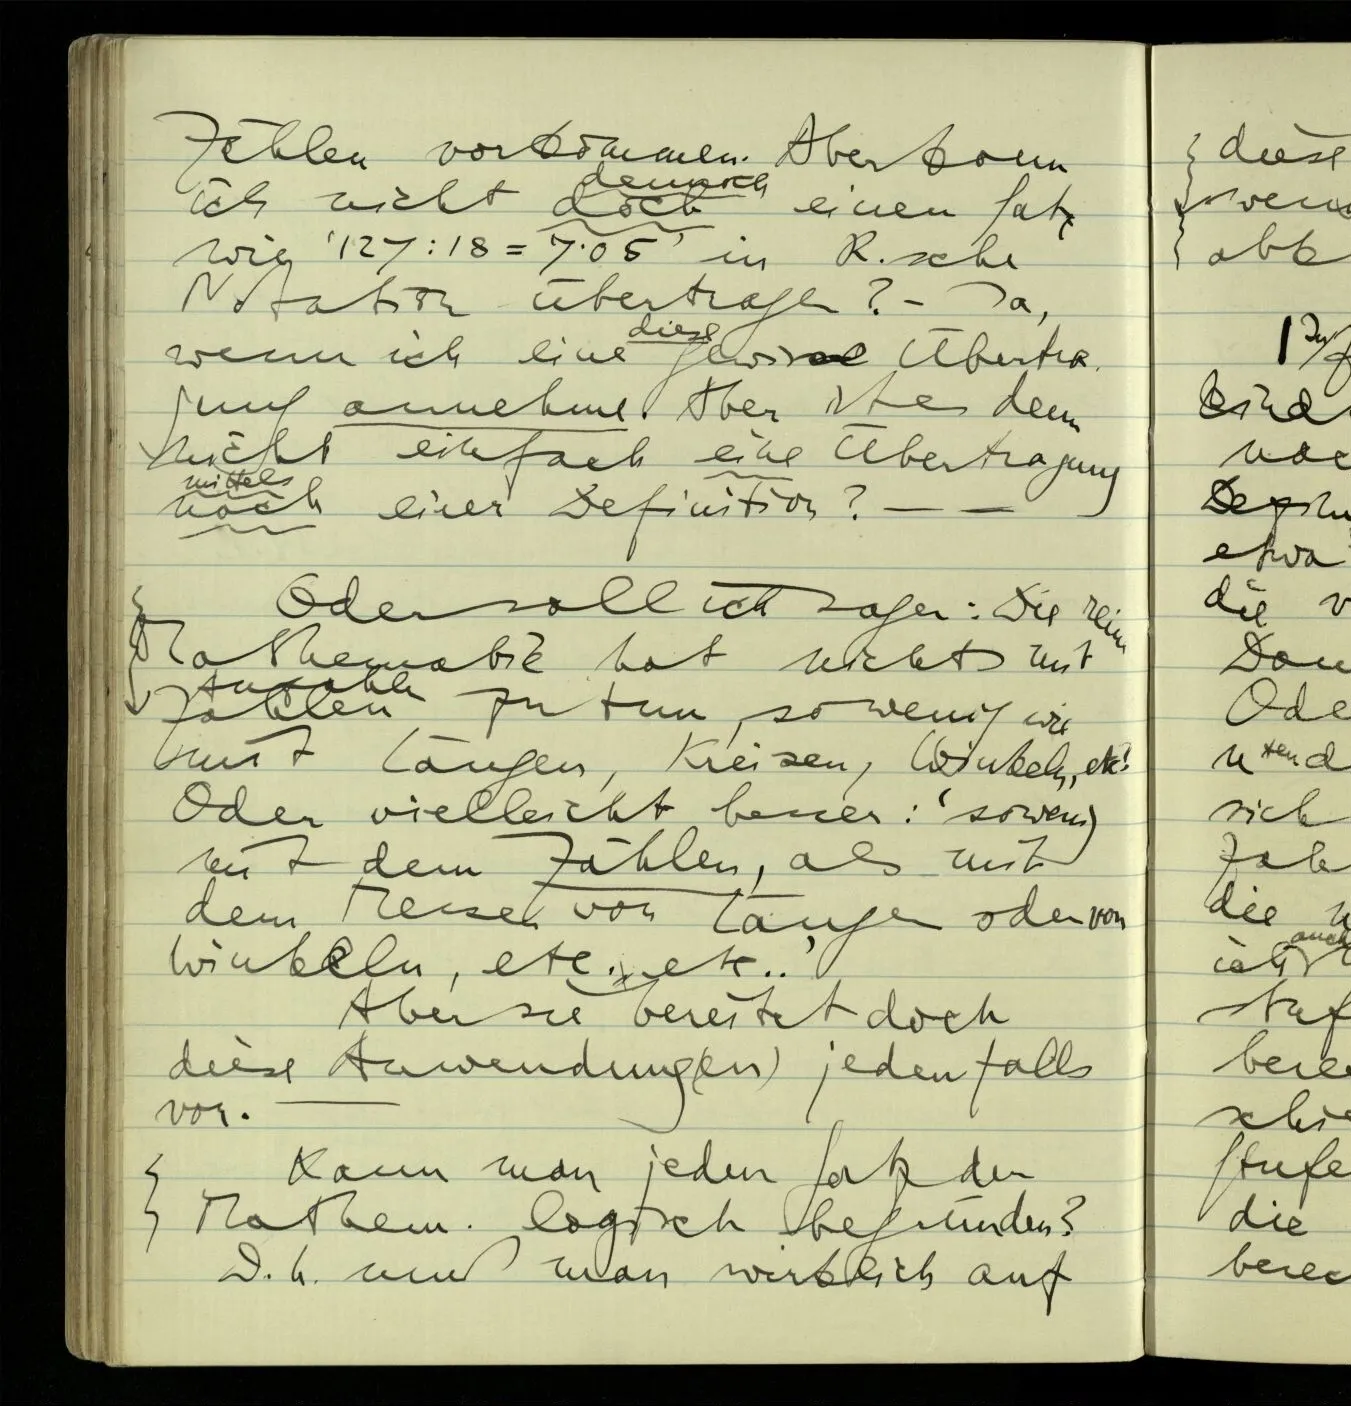 Zählen vorkommen. Aber kann
dennoch
ich nicht doch einen Satz
wie '127:18 = 7·05' in R.sche
Notation übertragen? – Ja,
diese
wenn ich eine gewisse Übertra-
gung annehme. Aber ist es denn
nicht einfach eine Übertragung
mittels
nach einer Definition? – –
Oder soll ich sagen: Die reine
Mathematik hat nichts mit
Anzahlen
Zahlen zu tun, sowenig wie
mit Längen, Kreisen, Winkeln, etc?
Oder vielleicht besser: 'sowenig
mit dem Zählen, als mit
dem Messen von Längen oder von
Winkeln, etc. etc..'
Aber sie bereitet doch
diese Anwendung(en) jedenfalls
vor. —
Kann man jeden Satz der
Mathem. logisch begründen?
D.h. muß man wirklich auf
diese
wenn
die
Ode
sich
die
auch
ich
die